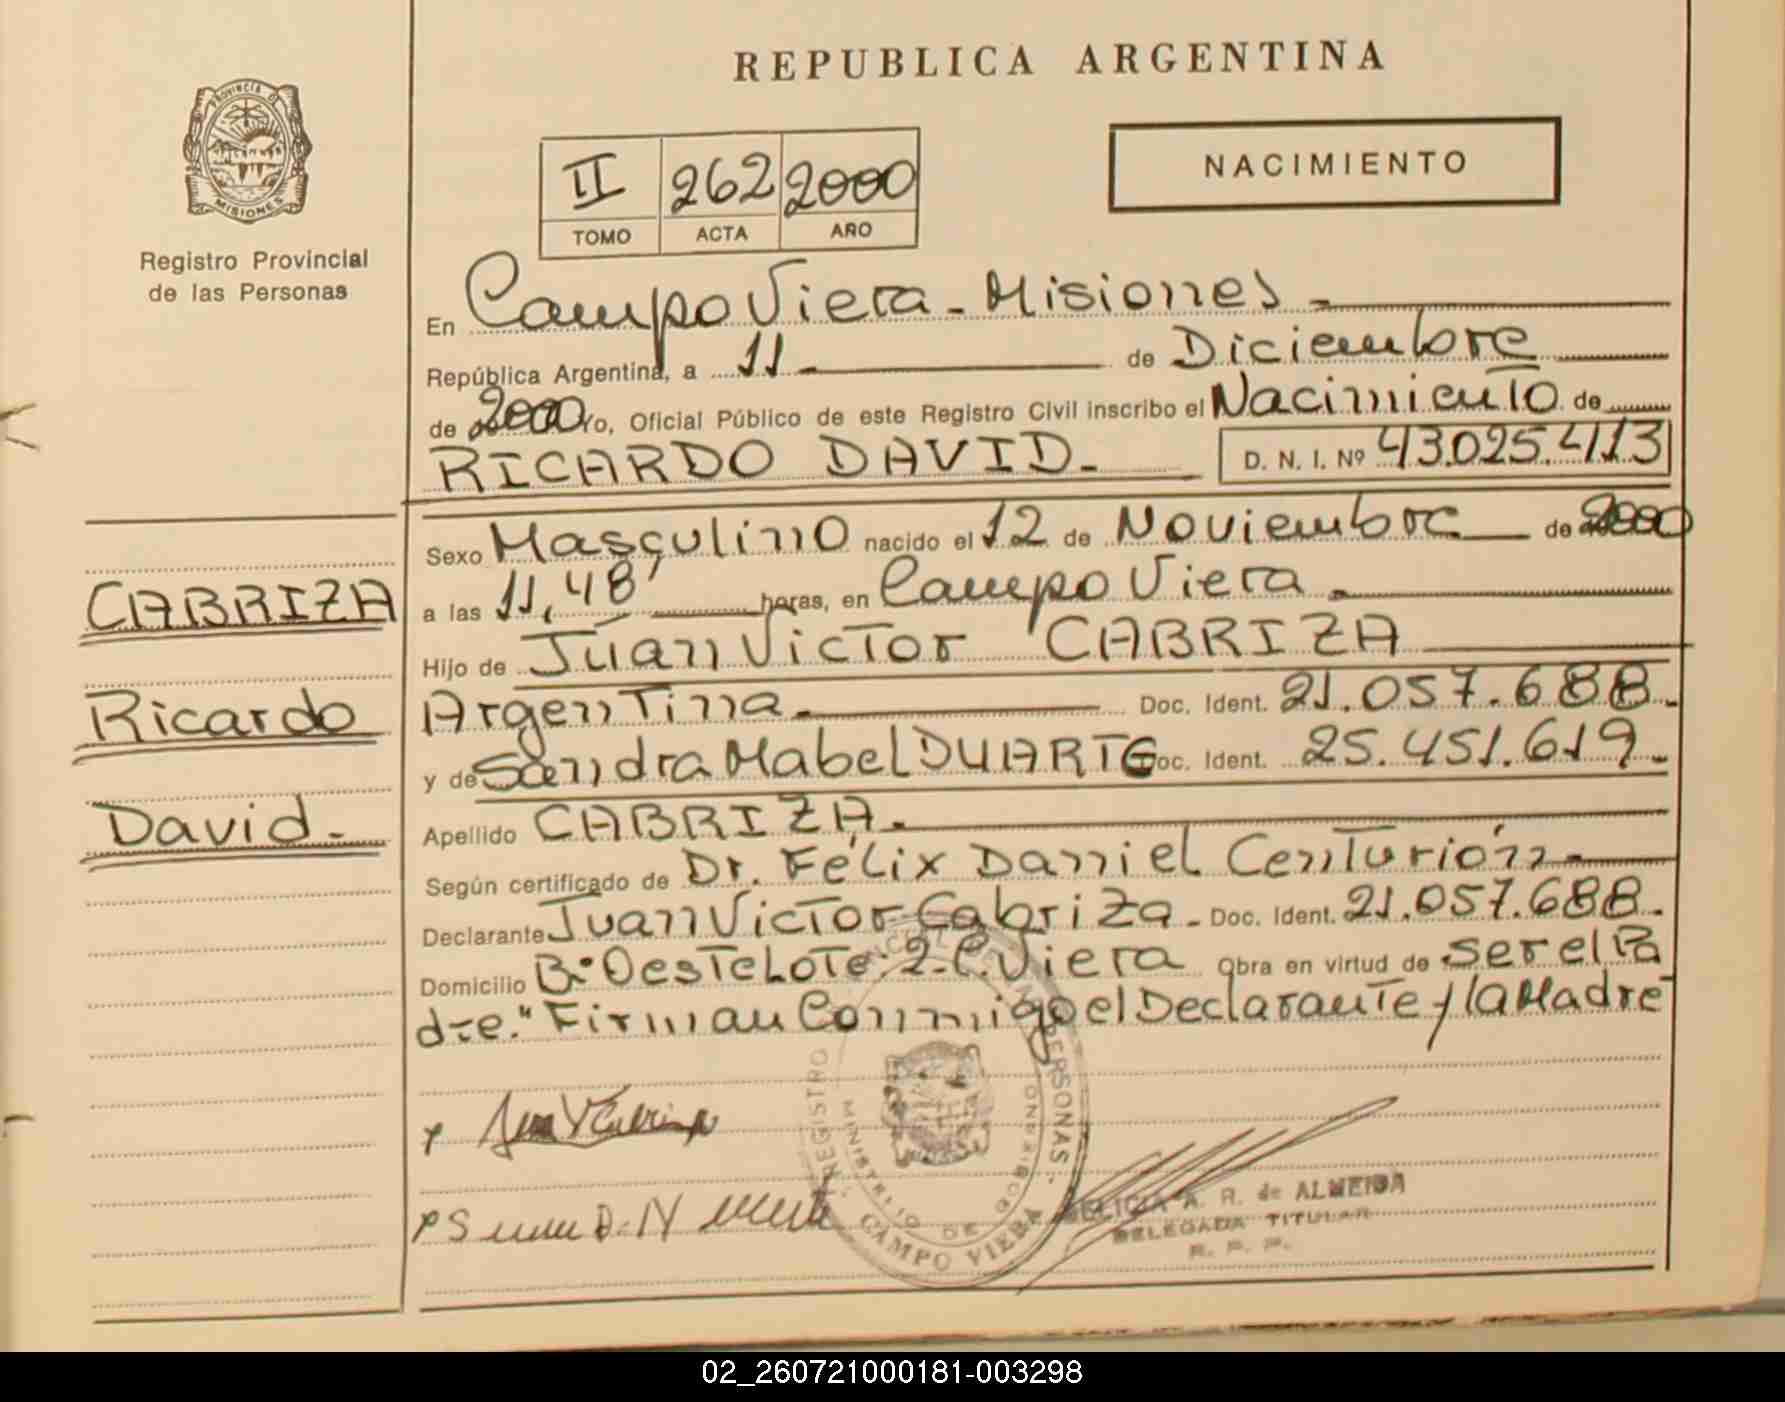 REPUBLICA ARGENTINA
PROVINCIA DE
MISIONES
Registro Provincial
de las Personas
NACIMIENTO
II 262 2000
TOMO ACTA AÑO
En Campo Viera - Misiones
República Argentina, a 11 de Diciembre
de 2000 Yo, Oficial Público de este Registro Civil inscribo el Nacimiento de
RICARDO DAVID. D. N. I. Nº 43.025.413
Sexo Masculino nacido el 12 de Noviembre de 2000
a las 11,48' horas, en Campo Viera.
Hijo de Juan Victor CABRIZA
Argentina. Doc. Ident. 21.057.688.
y de Sandra Mabel DUARTE Doc. Ident. 25.451.619.
Apellido CABRIZA.
Según certificado de Dr. Félix Daniel Centurión.
Declarante Juan Victor Cabriza. Doc. Ident. 21.057.688.
Domicilio Bº Oeste Lote: 2 - C. Viera Obra en virtud de ser el Pa
dre." Firman Conmigo el Declarante y la Madre
CABRIZA
Ricardo
David.
REGISTRO PERSONAS
MINISTERIO DE GOBIERNO
CAMPO VIERA
A. R. de ALMEIDA
DELEGADA TITULAR
R. P. P.
02_260721000181-003298